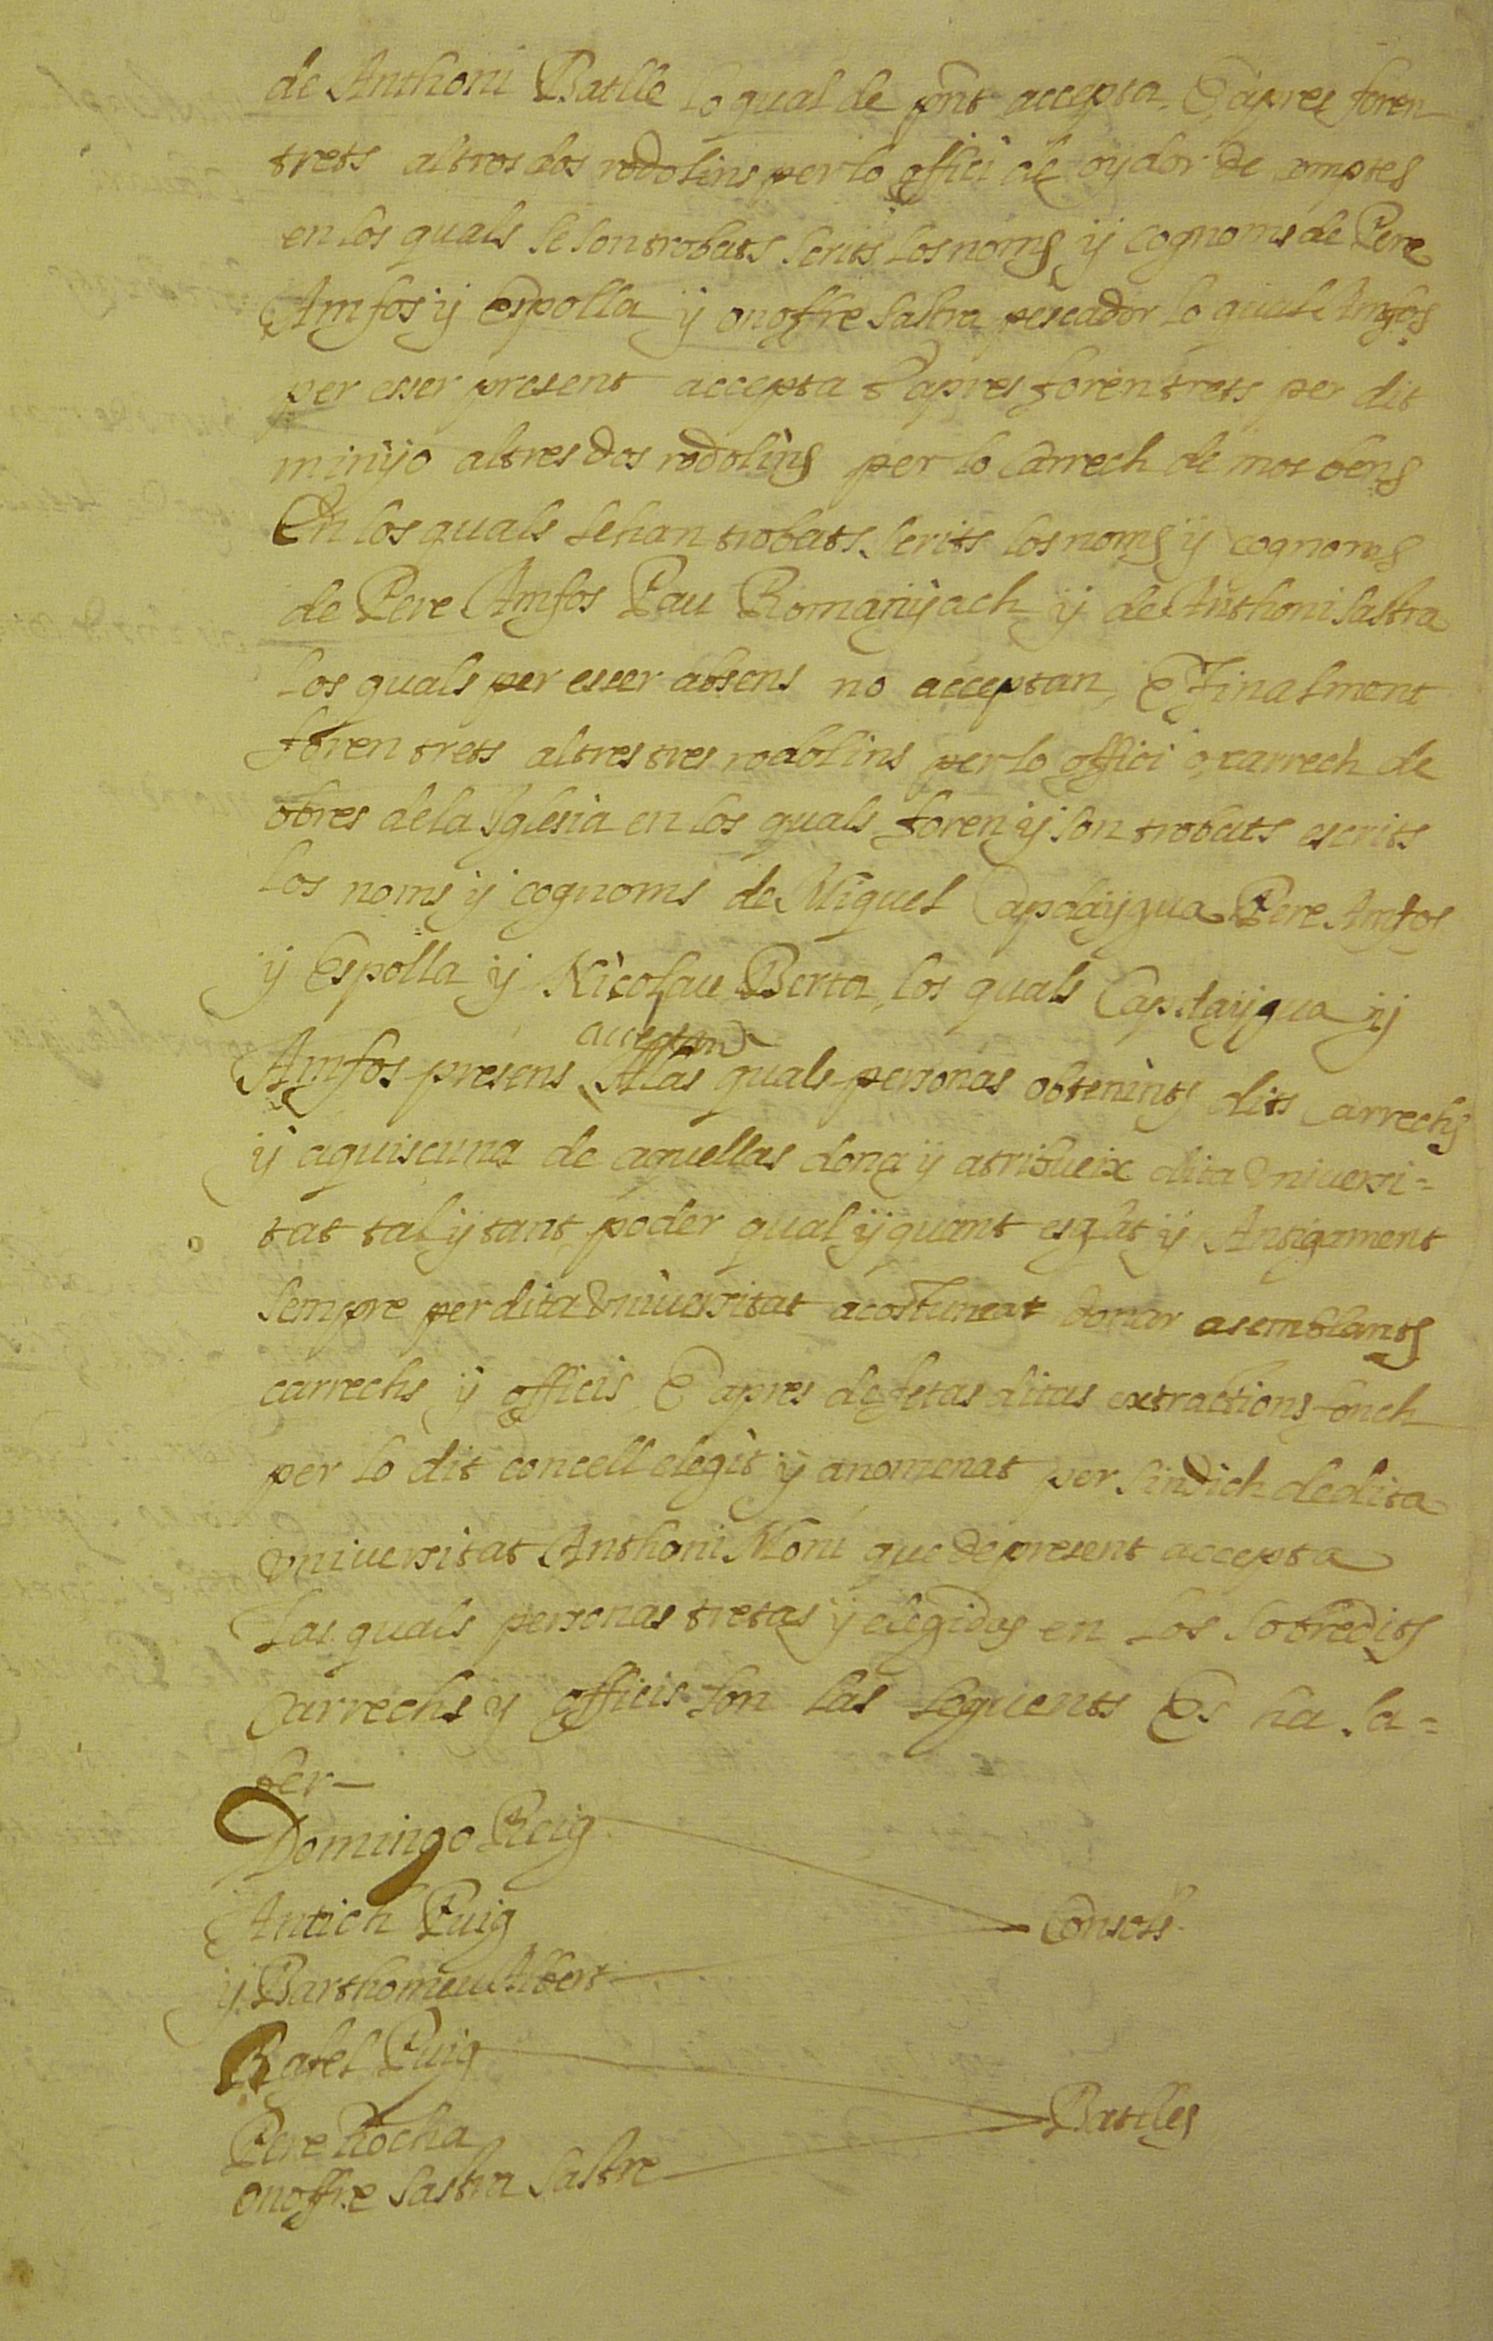 de Anthoni Batlle lo qual de pnt accepta. E apres foren
trets altros dos rodolins per lo offici de oydor de comptes
en los quals se son trobats scrits los noms y cognoms de Pere
Amfos y Espolla y onoffre Sastra pescador lo qual Amfos
per esser present accepta E apres foren trets per dit
minyo altres dos rodolins per lo Carrech de mos bens
En los quals se han trobats scrits los noms y cognoms
de Pere Amfos Pau Romanyach y de Anthoni Sastra
los quals per esser absens no acceptan, E finalment
foren trets altres tres rodolins per lo offici o carrech de
obres de la Iglesia en los quals foren y son trobats escrits
los noms y cognoms de Miquel Capdaygua Pere Amfos
y Espolla y Nicolau Berta los quals Capdaygua y
acceptan
Amfos presens, Alas quals personas obtenints dits Carrechs
y aquiscuna de aquellas dona y atribueix dita Vniversi=
tat tal y tant poder qual y quant es y Antigament
sempre per dita Vniuersitat acostumat donar a semblants
carrechs y officis E apres de fetas ditas extractions fonch
per lo dit concell elegit y anomenat per sindich de dita
Vniuersitat Anthoni Moni que de present accepta
Las quals personas tretas y elegidas en los sobredits
Carrechs y officis son las seguents Es ha sa=
ber—
Domingo Roig
Antich Puig
Consols
y Barthomeu Albert
Rafel Puig
Pere Rocha
Batlles
onoffre Sastra Sastre